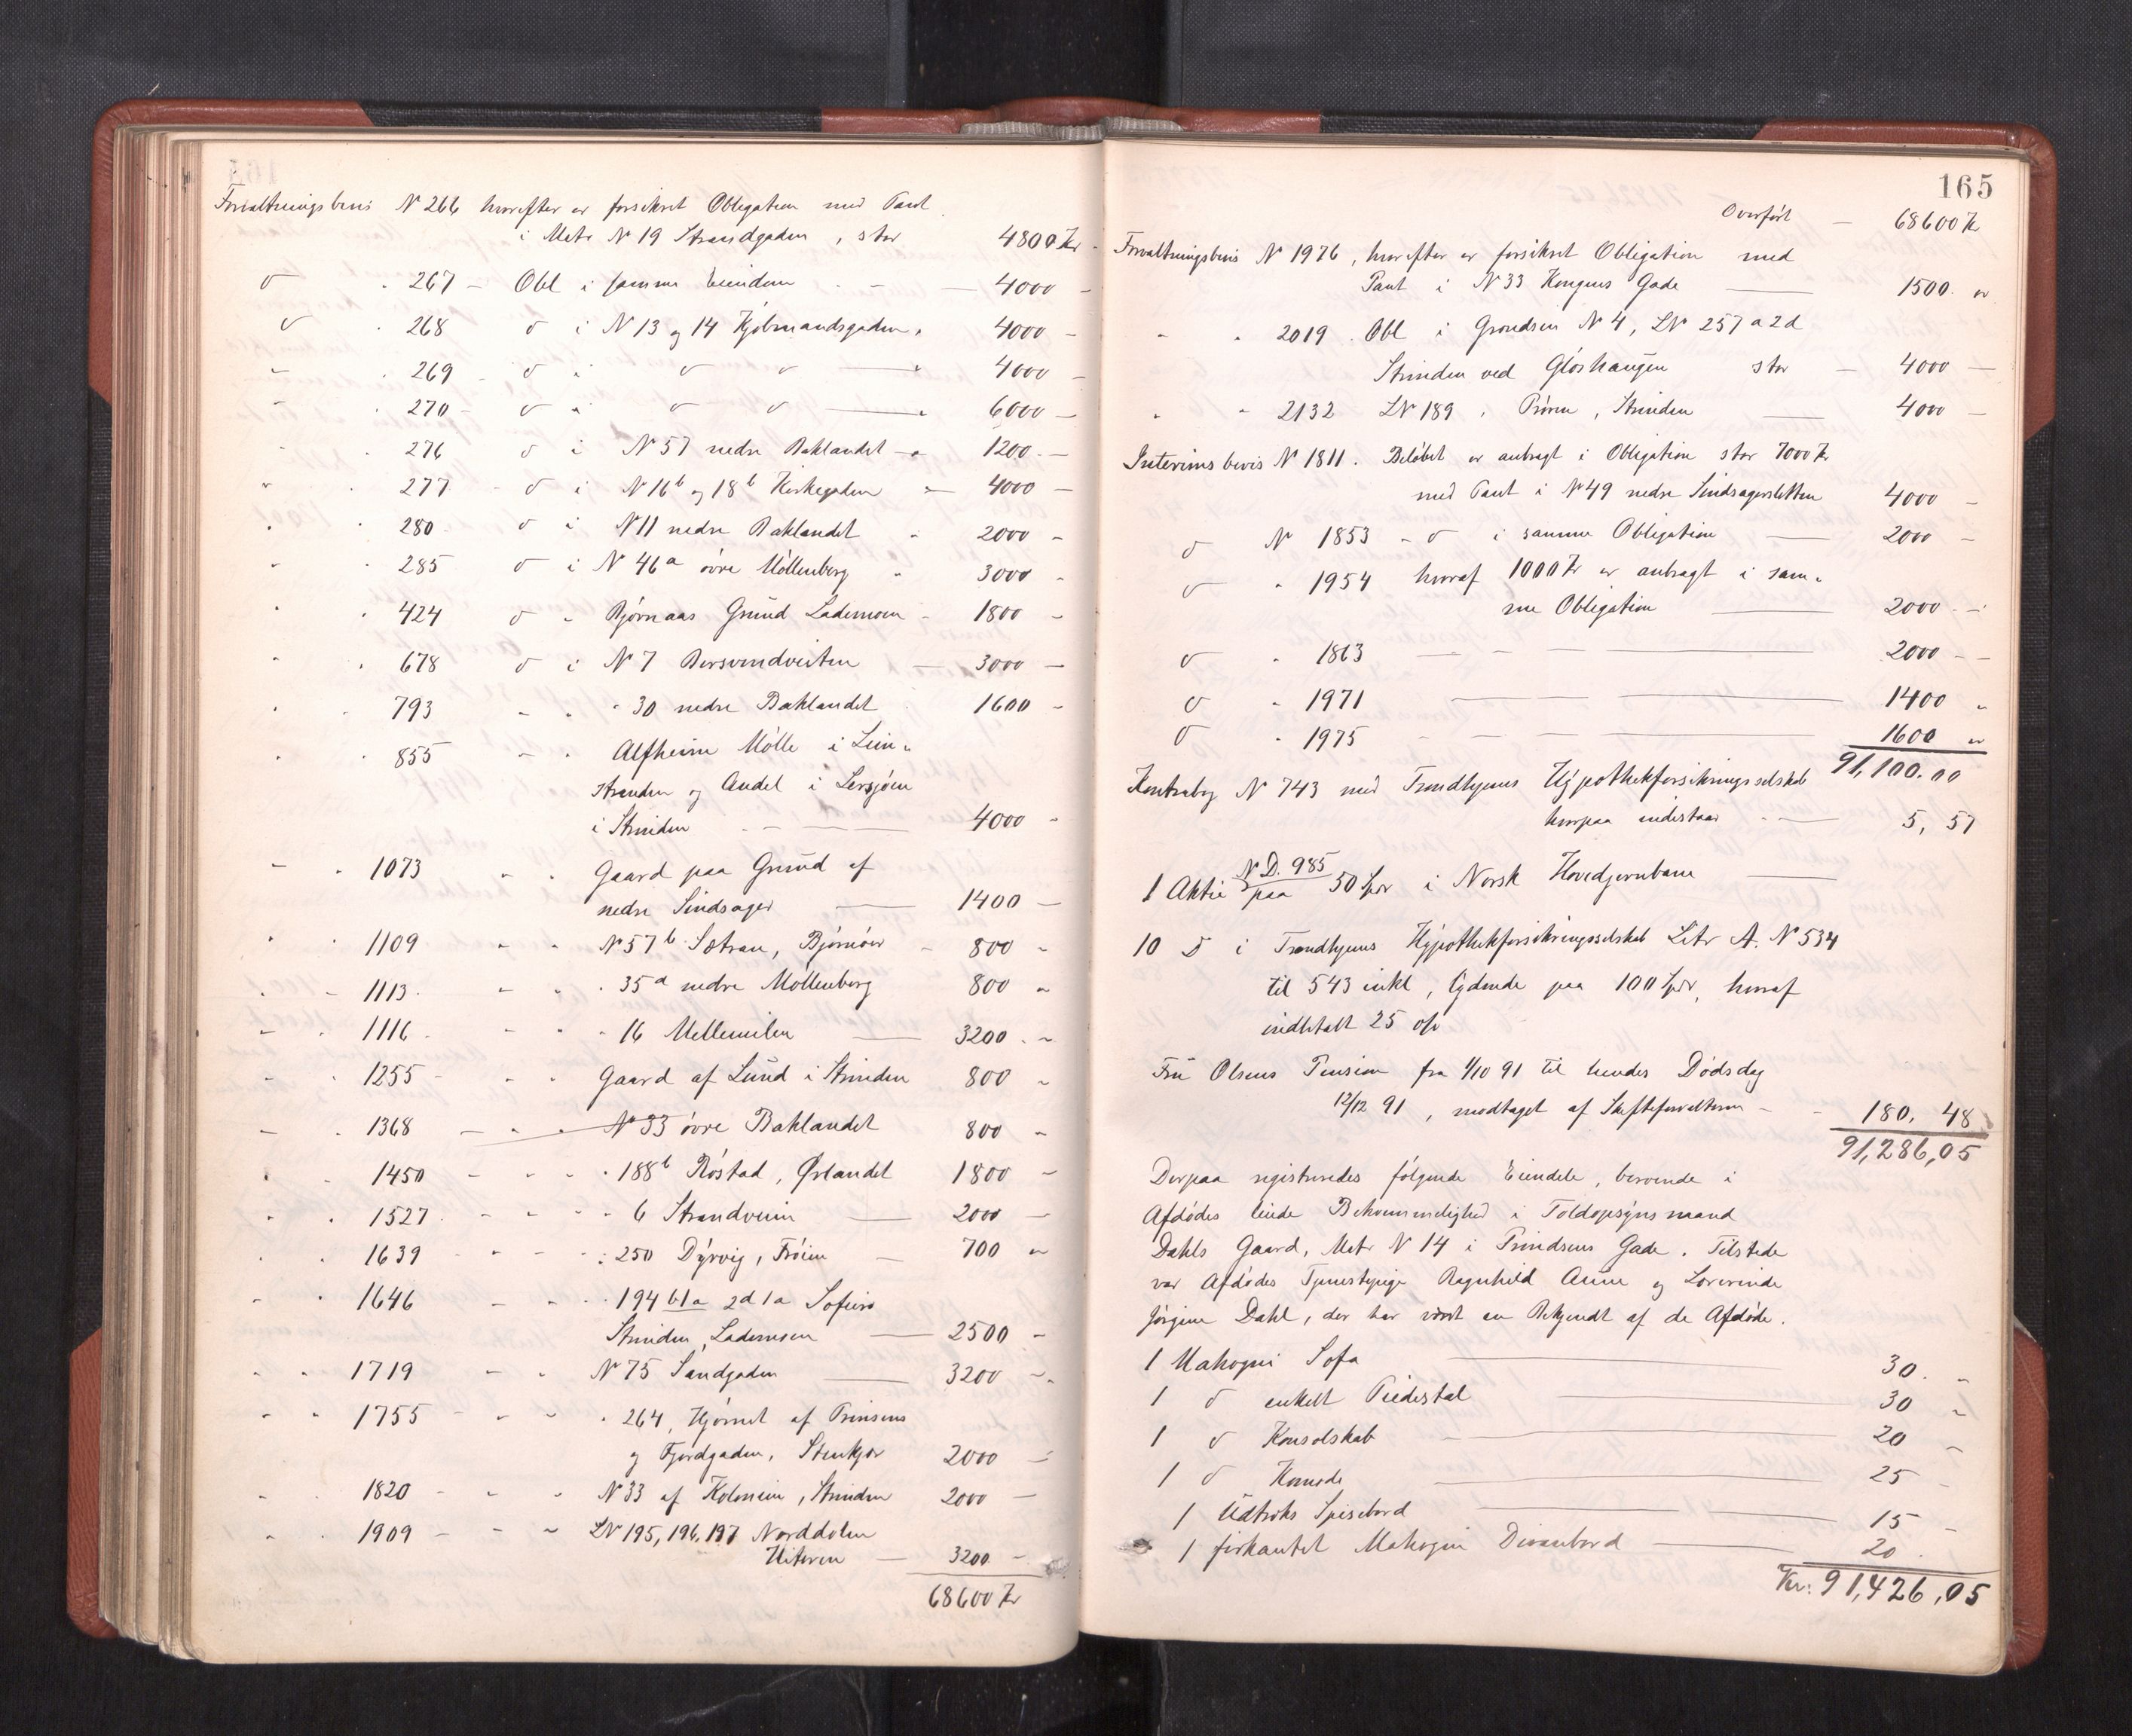 Forvaltningsbevis N 266 hvorefter er forsikret Obligation med Pant
i Matr N 19 Strandgaden, stor 4800 Kr
d 267 - Obl i samme Eiendom - 4000 -
d 268 d i N 13 og 14 Kjøbmandsgaden " 4000 -
" 269 - d " d d " 4000 -
" 270 - d " d d " 6000 -
" 276 d i N 57 nedre Baklandet - " 1200 -
" 277 - d i N 16b og 18b Kirkegaden " 4000 -
" 280 - d i N 11 nedre Baklandet " 2000 -
" 285 d i N 46a øvre Møllenberg " 3000 -
" 424 d " Bjørnaas Grund Lademoen - 1800 -
" 678 d i N 7 Bersvendveiten - 3000 -
" 793 - " " 30 nedre Baklandet 1600 -
" 855 - " Alfheim Mølle i Lein-
stranden og Andel i Lersjøen
i Strinden - 4000 -
" 1073 " " Gaard paa Grund af
nedre Sindsager - 1400 -
" 1109 " " N 57b Sætran, Bjørnør - 800 -
" 1113 - " " 35a nedre Møllenberg 800 "
" 1116 - " " 16 Mellemilen - 3200 - "
" 1255 - " " Gaard af Lund i Strinden 800 "
" 1368 - " " N 33 øvre Baklandet 800 "
" 1450 - " " 188b Røstad, Ørlandet 1800 -
" 1527 - " " 6 Strandveien - 2000 -
" 1639 - " " 250 Dyrvig, Frøien - 700 "
" 1646 - " " 194 b1a 2d1a Sofiero
Strinden, Lademoen - 2500 -
" 1719 - " N 75 Sandgaden - 3200 -
" 1755 - " " 264, Hjørnet af Prinsens
og Fjordgaden, Stenkjær 2000 -
" 1820 - " " N 33 af Kolonien, Strinden 2000 -
" 1909 - " " LN 195, 196, 197 Norddalen
Hiteren - 3200 -
68600 Kr
165
Overført - 68600 Kr
Forvaltningsbevis N 1976, hvorefter er forsikret Obligation med
Pant i N 33 Kongens Gade - 1500 "
" " 2019 Obl i Grændsen N 4, LN 257 a 2d
Strinden ved Gløshaugen stor - 4000 -
" " 2132 LN 189, Prøven, Strinden - 4000 -
Interimsbevis N 1811. Beløbet er anbragt i Obligation stor 7000 Kr
med Pant i N 49 nedre Sindsagersletten 4000 -
d N 1853 - d i samme Obligation - 2000 -
d " 1954 hvoraf 1000 Kr er anbragt i sam-
me Obligation - 2000 -
d " 1863 - 2000 -
d " 1971 - 1400 "
d " 1975 - 1600 "
91,100.00
Kontrabog N 743 med Trondhjems Hypothekforsikringsselskab
hvorpaa indestaar - 5,57
1 Aktie N D. 985 paa 50 Spdr i Norsk Hovedjernbane
10 D i Trondhjems Hypothekforsikringsselskab Litr A. N 534
til 543 inkl, lydende paa 100 Spdr, hvoraf
indbetalt 25 o/o
Fru Olsens Pension fra 1/10 91 til hendes Dødsdag
12/12 91, modtaget af Skifteforvalteren - 180,48
91,286,05
Derpaa registreredes følgende Eiendele, beroende i
Afdødes leiede Bekvemmelighed i Toldopsynsmand
Dahls Gaard, Matr N 14 i Prindsens Gade. Tilstede
var Afdødes Tjenestepige Ragnhild Aune og Lovrinde
Jørgine Dahl, der har været en Bekjendt af de Afdøde.
1 Mahogni Sofa - 30 "
1 d enkelt Piedestal - 30 "
1 d Konsolskab - 20 -
1 d Komode - 25 -
1 Udtræks Spisebord - 15 -
1 firkantet Mahogni Divanbord - 20
Kr: 91,426,05